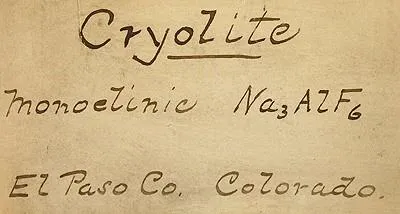 Cryolite
Monoclinic Na₃AlF₆
El Paso Co. Colorado.